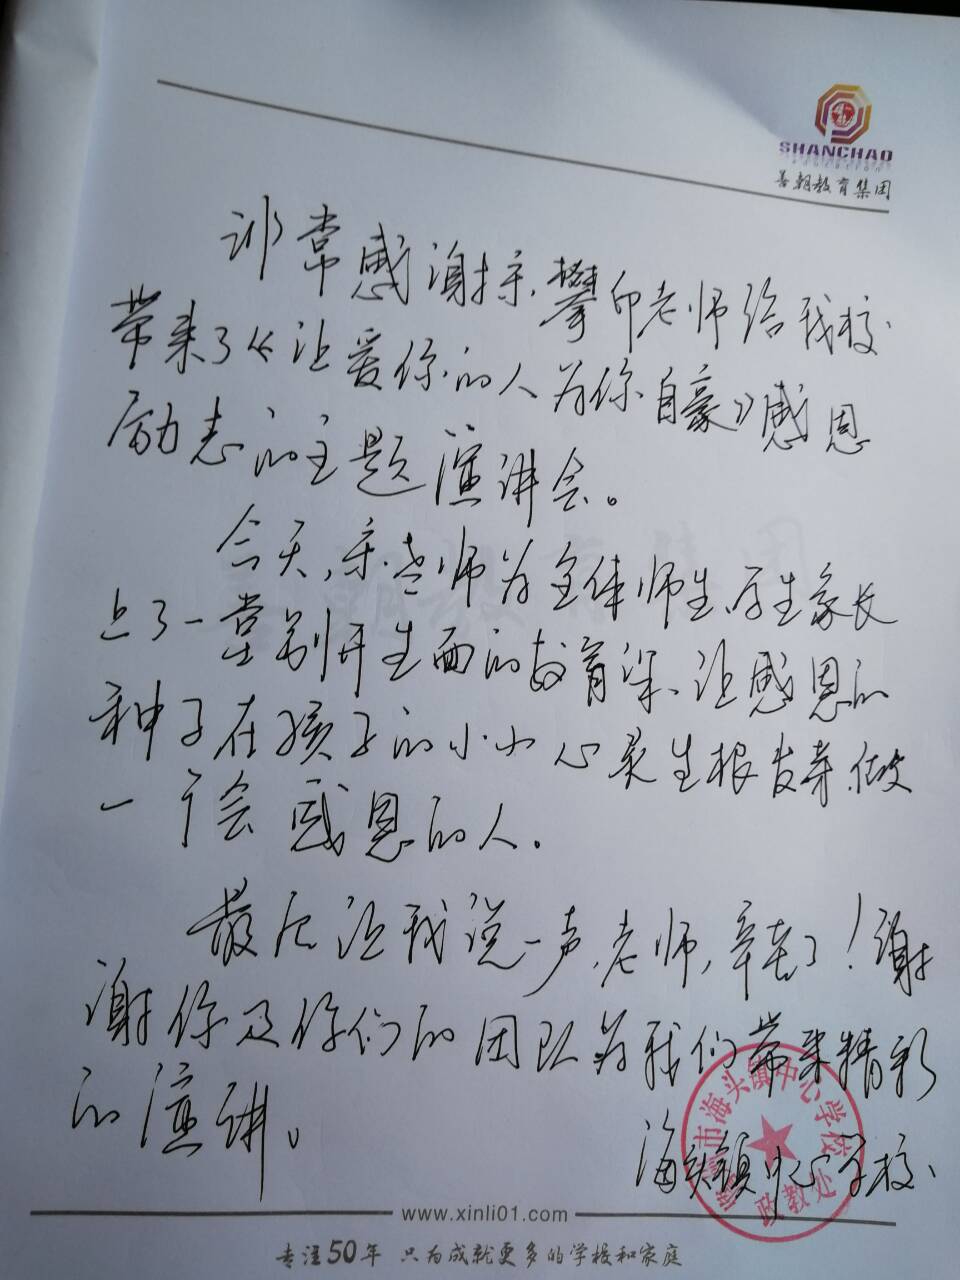 SHANCHAO
善朝教育集团
非常感谢宗攀印老师给我校
带来了《让爱你的人为你自豪》感恩
励志的主题演讲会。
今天,宗老师为全体师生、学生家长
上了一堂别开生面的教育课、让感恩的
种子在孩子的小小心灵生根发芽.做
一个会感恩的人。
最后让我说一声,老师,辛苦了!谢
谢你及你们的团队为我们带来精彩
的演讲。
海头镇中心学校
市海头镇中心学校
政教处
www.xinli01.com
专注50年 只为成就更多的学校和家庭